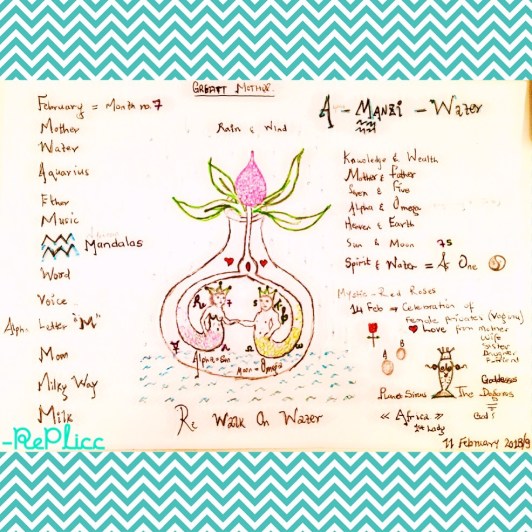 GREAT MOTHER
February = Month no. 7
Mother
Water
Aquarius
Ether
Music
Mandalas
Word
Voice
Alpha Letter "M"
Mom
Milky Way
Milk
Rain & Wind
7
Alpha = Sun
Moon = Omega
Re Walk On Water
A - MANZI - Water
Knowledge & Wealth
Mother & Father
Seven & Five
Alpha & Omega
Heaven & Earth
Sun & Moon 75
Spirit & Water = As One
Mystic - Red Roses
14 Feb → Celebration of
Female Privates (Vagina)
Love from mother
Wife
Sister
Daughter
A
B
Goddesses
The Dogons
"Africa"
1st Lady
God!
11 February 2018/9
-RePlicc